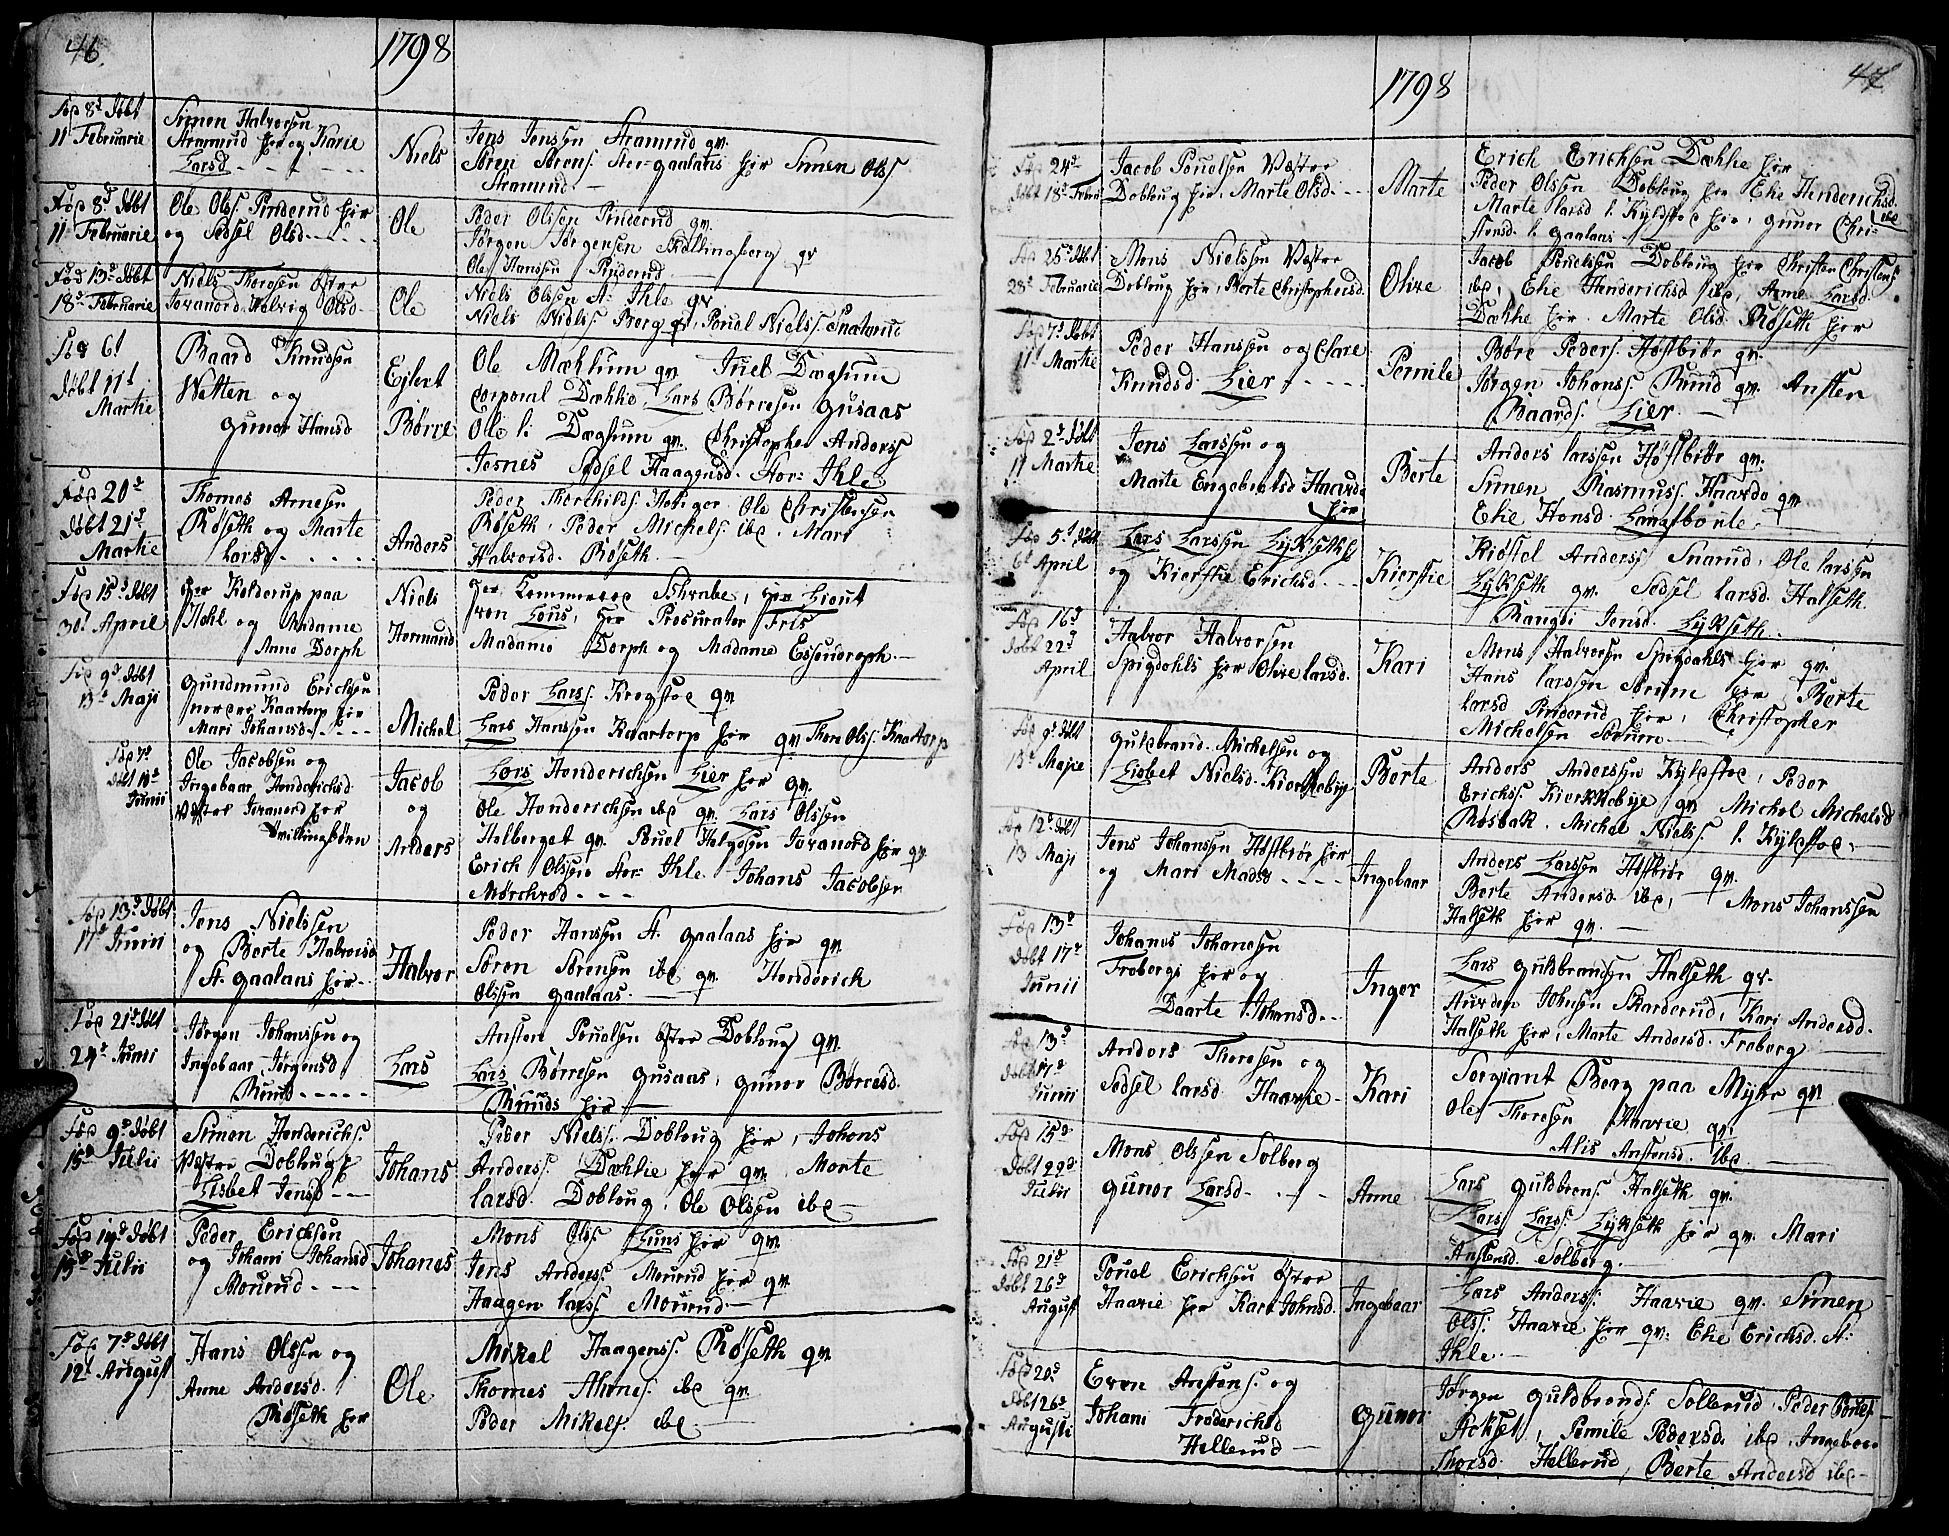 46.
1798
Fød 8d Døbt
11 Februarie
Simen Halvorsen
Stramrud hør og Karie
Larsd - - - - -
Niels
Jens Jensen Stramrud gm.
Søren Sørens. Stor-gaalaas hør Simen Ols
Stramrud. —
Fød 8d Døbt
11 Februarie
Ole Ols. Pinderud hør
og Sedsel Olsd - - - -
Ole
Peder Olssen Pinderud gm.
Jørgen Jørgensen Skollingsberg gv
Ole Hanssen Pinderud
Fød 13d Døbt
18d Februarie
Niels Thoresen Østre
Joranord Helvig Olsd -
Ole
Niels Olssen St. Ihle gv
Niels Niels. Berg gv, Pouel Niels. Snaterud
Fød 6t
Døbt 11t
Martie
Baard Knudsen
Wetten og
Gunor Hansd
Ejlert
Børre
Ole Mæhlum gm Juel Dæglum
Corporal Dæhlie, Lars Børresen Gusaas
Olle l. Dæglum gm. Christopher Anders
Jesnes Sedsel Haagensd. Stor- Ihle
Fød 20d
Døbt 21d
Martie
Thomas Arnesen
Røseth og Marte
Larsd - - - - -
Anders
Peder Thorchilds. Ole Christensen
Røseth, Peder Michels. ibd. Mari
Halvorsd. Røseth —
Fød 15d Døbt
30t April
Hør Kolderup paa
Hohl og Madame
Anne Dorph
Niels
Hermand
Hør. Commerce Schrabe, Hør Lieut
von Lous, Hør Procurator Friis
Madame Dorph og Madame Essendroph —
Fød 9d Døbt
13d Maji
Gundmund Erichsen
nordre Kaartorp hør
Mari Johansd - - - -
Michel
Peder Lars. Krogstoe gm
Lars Hanssen Kaartorp hør gm Thore Ols. Kaartorp
Fød 7d
Døbt 10d
Junii
Ole Jacobsen og
Ingebaar Henderichsd
Væstre Joranord hør
Tvillingbørn
Jacob
og
Anders
Lars Henderichsen Lier hør gm
Ole Henderichsen ibd gm Lars Olssen
Helberget gm Pouel Helgesen Joranord hør gm
Erich Olssen Stor- Ihle. Johans Jacobsen
Mørchved - - -
Fød 13d Døbt
17d Junii
Jens Nielssen
og Berte Halvorsd
St. gaalaas hør —
Halvor
Peder Hansen St. gaalaas hør gm
Søren Sørensen ibd gm Henderich
Olssen gaalaas. —
Fød 21d Døbt
24d Junii
Jørgen Johanssen og
Ingebaar Jørgensd
Ruud - - - - -
Lars
Ansten Pouelsen Østre Dobloug gm
Lars Børresen Gusaas, Gunor Børresd.
Ruuds hør —
Fød 9d Døbt
15d Julii
Simen Henderichs.
Væstre Dobloug
Lisbet Jensd - - -
Johans
Peder Niels. Dobloug hør, Johans
Anders. Dæhlie hør gm, Marte
Larsd. Dobloug, Ole Olssen ibd —
Fød 14d Døbt
15d Julii
Peder Erichsen
og Johani Johansd
Mourud - - -
Johanes
Mons Ols. Luns hør gm
Jens Anders. Mourud hør gm
Haagen Lars. Mourud —
Fød 7d Døbt
12t August
Hans Olssen og
Anne Andersd.
Røseth hør
Ole
Mikel Haagens. Røseth gm
Thomes Ahrnes. ibd gm
Peder Mikels. ibd —
47
1798
Fød 24d
Døbt 18d Febru
Jacob Pouelsen Væstre
Dobloug hør, Marte Olsd. - -
Marte
Erich Erichsen Dæhlie hør
Peder Olssen Dobloug hør Elie Henderichsd
ibd
Marte Larsd l. Kyldstoe hør, Gunor Chri-
stensd. l. gaalaas
Fød 25d Døbt
28d Februarie
Mons Nielssen Væstre
Dobloug hør, Berte Christophersd.
Olive
Jacob Pouelssen Dobloug hør Christen Christens
ibd, Elie Henderichsd ibd, Anne Larsd.
Dæhlie hør. Marte Olsd. Røseth hør
Fød 7d Døbt
11t Martie
Peder Hanssen og Clare
Knudsd. Lier - - - -
Pernile
Børe Peders. Høstbiør gm.
Jørgen Johans. Ruud gm. Ansten
Baards. Lier. —
Fød 2d Døbt
11 Martie
Jens Larssen og
Marte Engebretsd Haarde
hør
Berte
Anders Larssen Høstbiør gm.
Simen Rasmus. Haarde gm
Elie Hansd. Langtbonte. —
Fød 5t Døbt
6t April
Lars Larssen Lykseth
og Kierstie Erichsd. - -
Kierstie
Kiøstel Anders. Snarud, Ole Larssen
Lykseth gm. Sedsel Larsd. Halseth.
Rangdi Jensd. Lykseth.
Fød 16d
Døbt 22d
April
Halvor Halvorsen
Spigdahls hør Olive Larsd.
Kari
Mons Halvorsen Spigdahls hør gm.
Hans Larssen Sørum hør, Berte
Larsd Pinderud hør, Christopher
Michelsen Sørum. —
Fød 9d Døbt
13d Maje
Guldbrand Michelsen og
Lisbet Nielsd. Kierkkebye
Berte
Anders Anderssen Kyldstoe, Peder
Erichs. Kierkkebye gm Michel Michelsd
Rosbak. Michel Niels. l. Kyldstoe, —
Fød 12d Døbt
13 Maji
Jens Johanssen Høstbiør hør
og Mari Madsd - - - -
Ingebaar
Anders Larssen Høstbiør gm.
Berte Andersd. ibd, Mons Johanssen
Halseth hør gm. —
Fød 13d
Døbt 17d
Junii
Johanes Johanesen
Frobergs hør og
Daarte Johansd - -
Inger
Lars Guldbrandsen Halseth gv.
Auvden Johnsen Skarderud, Kari Andersd.
Halseth hør, Marte Andersd. Froberg
Fød 13d
Døbt 17d
Junii
Anders Thoresen og
Sedsel Larsd. Haavie -
Kari
Sergiant Berg paa Myhr gm
Ole Thoresen Haavie gm
Alis Anstensd. ibd —
Fød 15d
Døbt 22d
Julii
Mons Olssen Solberg
Gunor Larsd - - -
Anne
Lars Guldbrans. Halseth gm.
Lars Lars. Lykseth hør gm Mari
Anstensd. Solberg. —
Fød 21d
Døbt 26d
August
Pouel Erichsen Østre
Haavie hør Kari Johnsd.
Ingebaar
Lars Anders. Haavie gm. Simen
Ols. Haavie hør gm. Elie Erichsd. St.
Ihle. —
Fød 20d
Døbt 26d
Augusti
Even Anstens. og
Johani Frederichsd
Hellerud —
Gunor
Jørgen Guldbrands. Sollerud, Peder Pouels.
Ackset, Pernile Pedersd. ibd, Ingebor
Thorsd. Hellerud, Berte Andersd ibd —